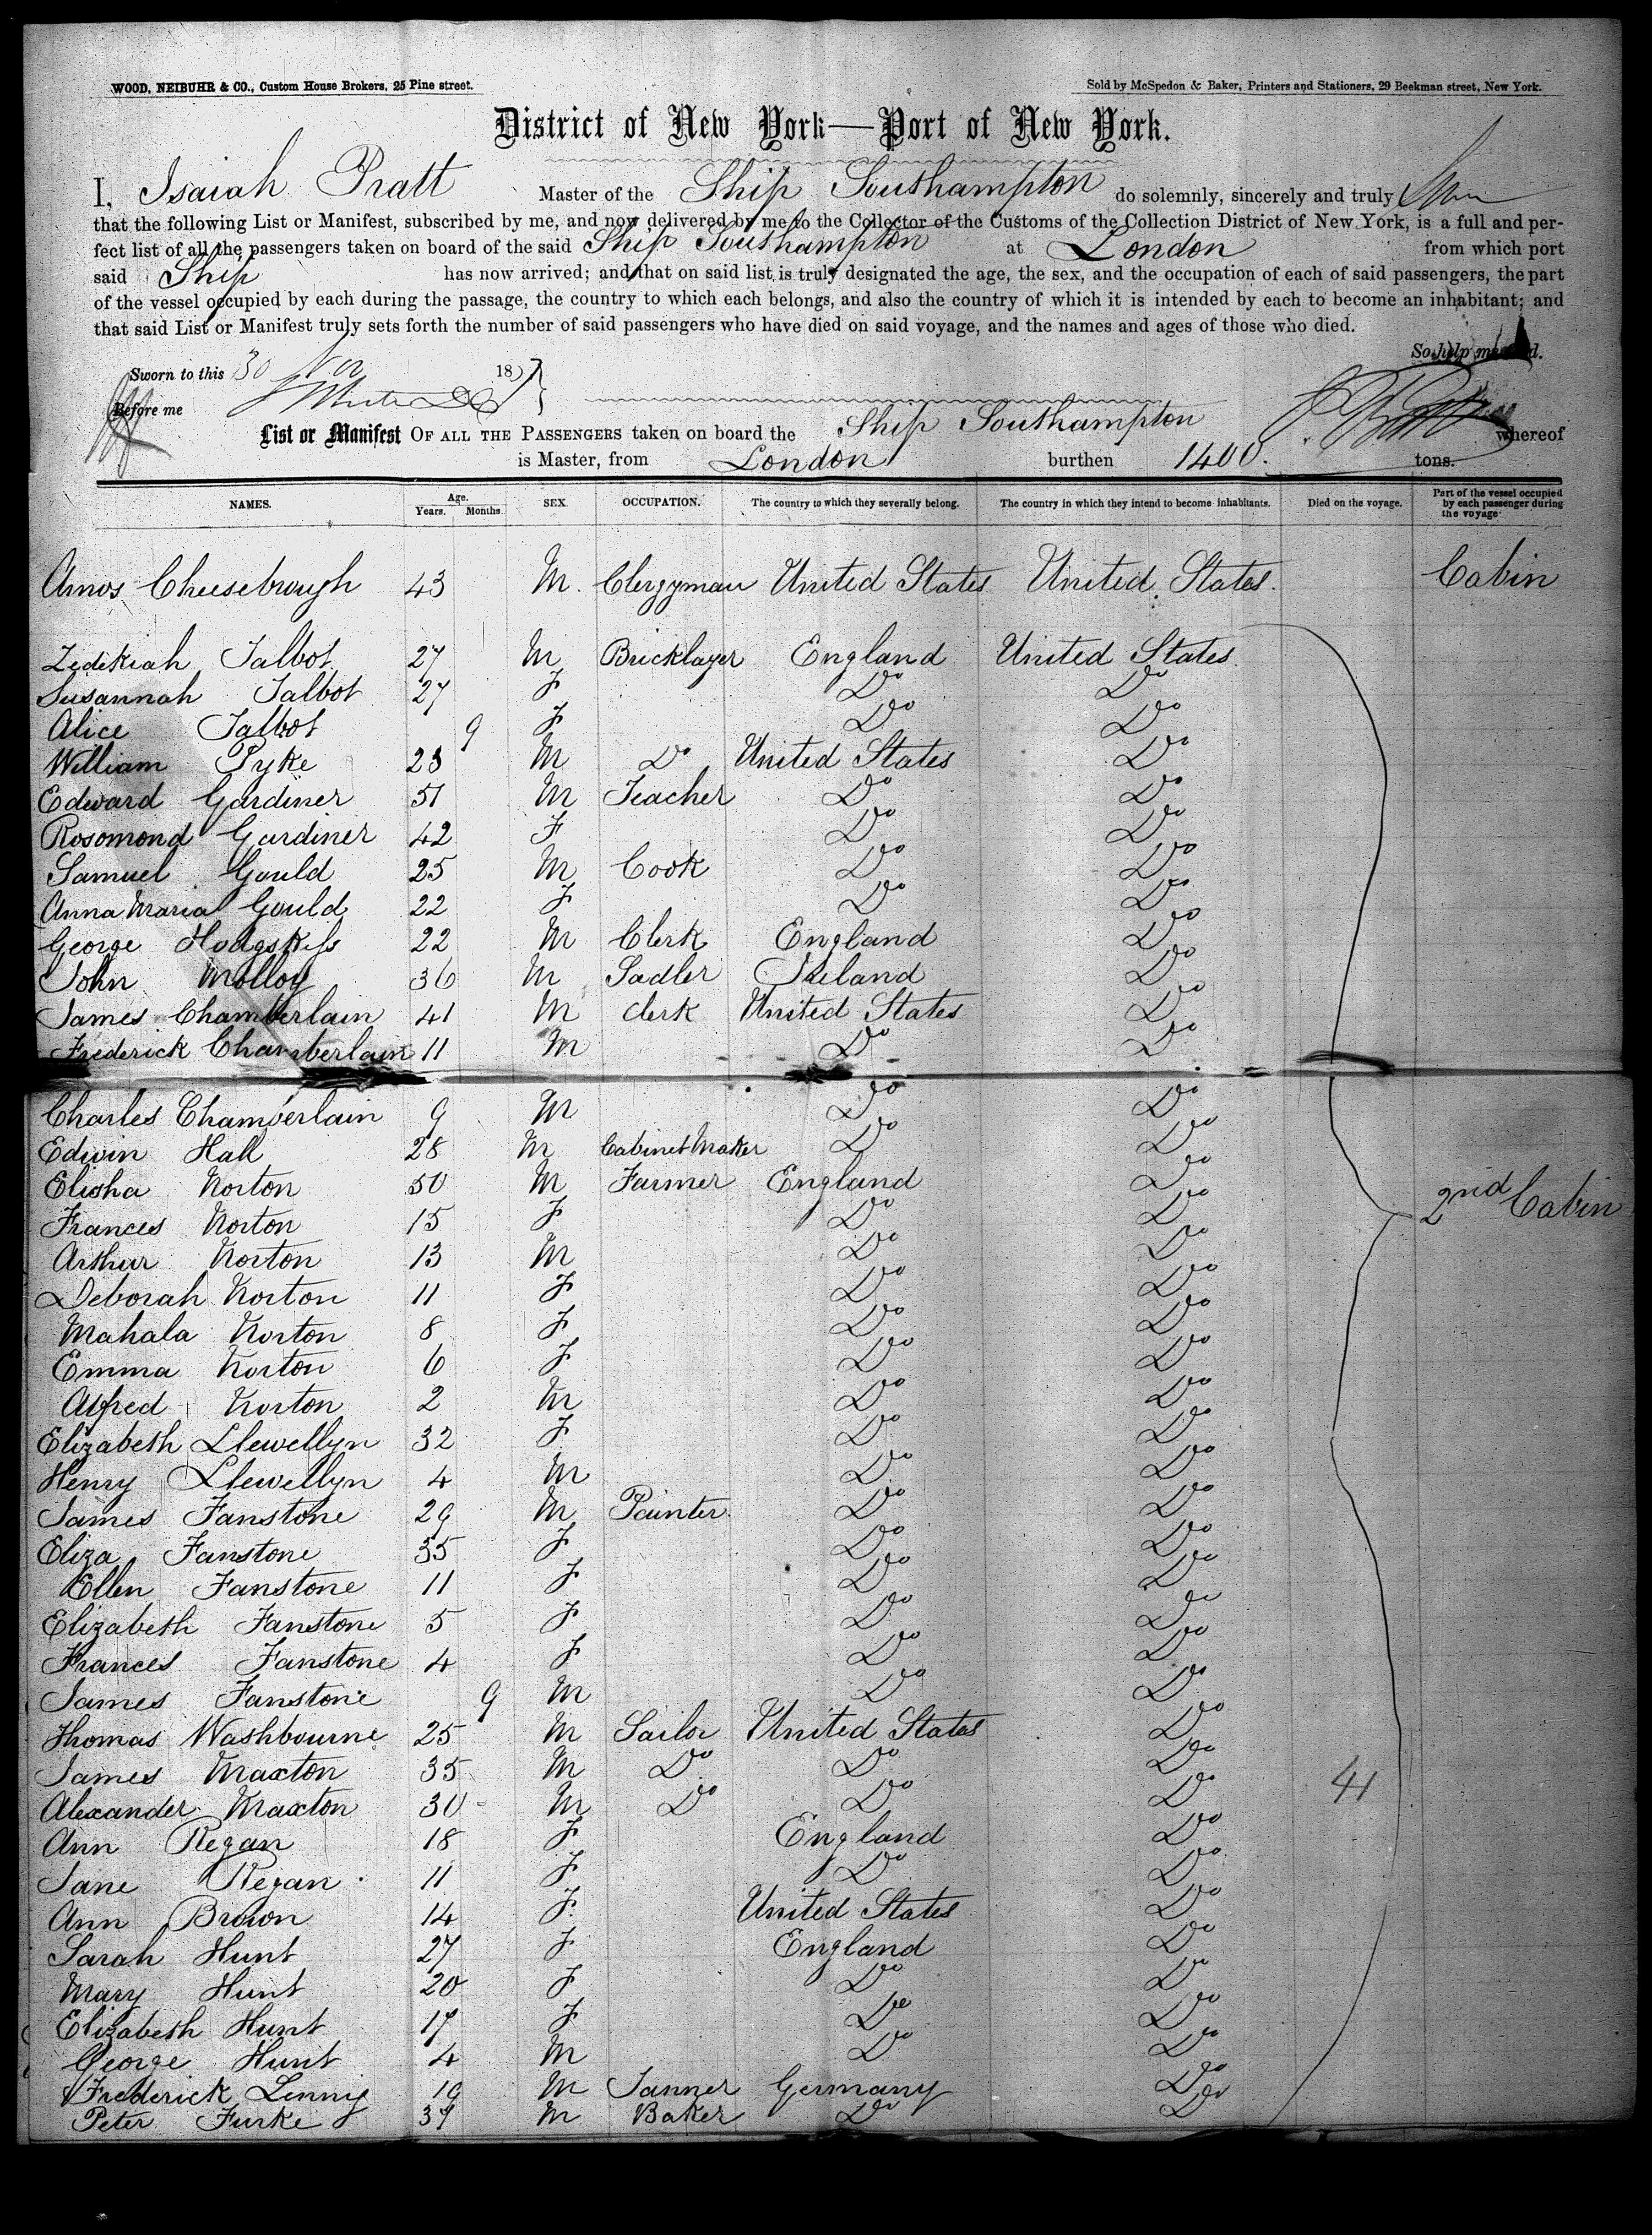 WOOD, NEIBUHR & CO., Custom House Brokers, 25 Pine street.
Sold by McSpedon & Baker, Printers and Stationers, 29 Beekman street, New York.
District of New York—Port of New York.
I, Isaiah Pratt Master of the Ship Southampton do solemnly, sincerely and truly
that the following List or Manifest, subscribed by me, and now delivered by me to the Collector of the Customs of the Collection District of New York, is a full and per-
fect list of all the passengers taken on board of the said Ship Southampton at London from which port
said Ship has now arrived; and that on said list is truly designated the age, the sex, and the occupation of each of said passengers, the part
of the vessel occupied by each during the passage, the country to which each belongs, and also the country of which it is intended by each to become an inhabitant; and
that said List or Manifest truly sets forth the number of said passengers who have died on said voyage, and the names and ages of those who died.
So help me God.
Sworn to this 30 Nov 185
Before me
List or Manifest OF ALL THE PASSENGERS taken on board the Ship Southampton whereof
is Master, from London burthen 1400. tons.
NAMES. Age. Years. Months. SEX. OCCUPATION. The country to which they severally belong. The country in which they intend to become inhabitants. Died on the voyage. Part of the vessel occupied by each passenger during the voyage
Amos Cheesebrough 43 M. Clergyman United States United States. Cabin
Zedekiah Talbot 27 M Bricklayer England United States.
Susannah Talbot 27 F Do Do
Alice Talbot 9 F Do Do
William Pyke 23 M Do United States Do
Edward Gardiner 51 M Teacher Do Do
Rosomond Gardiner 42 F Do Do
Samuel Gould 25 M Cook Do Do
Anna Maria Gould 22 F Do Do
George Hodgskiss 22 M Clerk England Do
John Molloy 36 M Sadler Ireland Do
James Chamberlain 41 M Clerk United States Do
Frederick Chamberlain 11 M Do Do
Charles Chamberlain 9 M Do Do
Edwin Hall 28 M Cabinet Maker Do Do
Elisha Norton 50 M Farmer England Do
2nd Cabin
Frances Norton 15 F Do Do
Arthur Norton 13 M Do Do
Deborah Norton 11 F Do Do
Mahala Norton 8 F Do Do
Emma Norton 6 F Do Do
Alfred Norton 2 M Do Do
Elizabeth Llewellyn 32 F Do Do
Henry Llewellyn 4 M Do Do
James Fanstone 29 M Painter Do Do
Eliza Fanstone 35 F Do Do
Ellen Fanstone 11 F Do Do
Elizabeth Fanstone 5 F Do Do
Frances Fanstone 4 F Do Do
James Fanstone 9 M Do Do
Thomas Washbourne 25 M Sailor United States Do
James Maxton 35 M Do Do Do 41
Alexander Maxton 30 M Do Do Do
Ann Regan 18 F England Do
Jane Regan 11 F Do Do
Ann Brown 14 F United States Do
Sarah Hunt 27 F England Do
Mary Hunt 20 F Do Do
Elizabeth Hunt 17 F Do Do
George Hunt 4 M Do Do
Frederick Lennig 19 M Tanner Germany Do
Peter Furke 37 M Baker Do Do